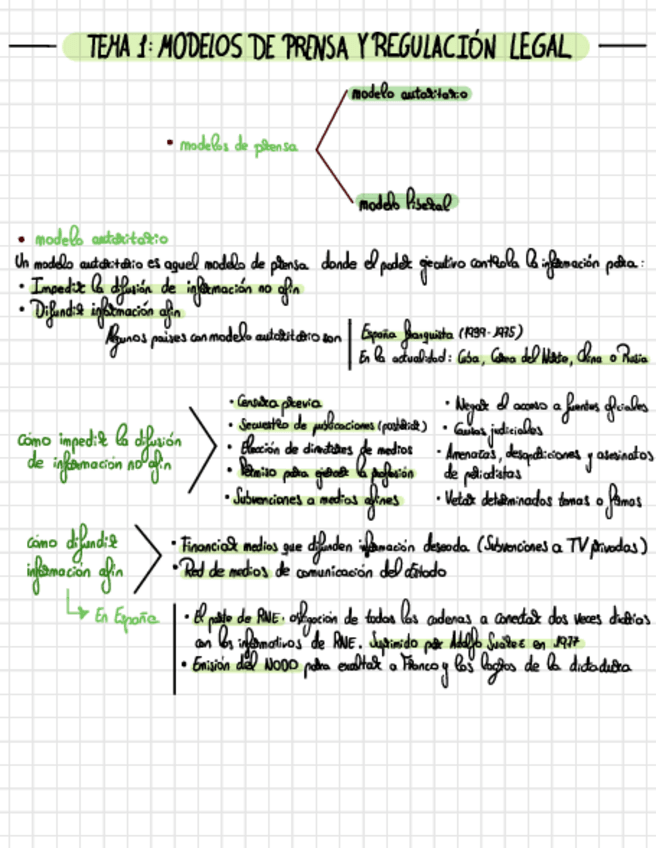 TEMA 1: MODELOS DE PRENSA Y REGULACIÓN LEGAL
modelo autoritario
• modelos de prensa
modelo liberal
• modelo autoritario
Un modelo autoritario es aquel modelo de prensa donde el poder ejecutivo controla la información para:
• Impedir la difusión de información no afín
• Difundir información afín
Algunos países con modelo autoritario son
España franquista (1939-1975)
En la actualidad: Cuba, Corea del Norte, China o Rusia
cómo impedir la difusión
de información no afín
• Censura previa
• Secuestro de publicaciones (posterior)
• Elección de directores de medios
• Permiso para ejercer la profesión
• Subvenciones a medios afines
• Negar el acceso a fuentes oficiales
• Causas judiciales
• Amenazas, desapariciones y asesinatos
de periodistas
• Vetar determinados temas o firmas
cómo difundir
información afín
• Financiar medios que difunden información deseada (Subvenciones a TV privadas)
• Red de medios de comunicación del estado
En España
• El parte de RNE: obligación de todas las cadenas a conectar dos veces diarias
con los informativos de RNE. Suprimido por Adolfo Suárez en 1977
• Emisión del NODO para exaltar a Franco y los logros de la dictadura